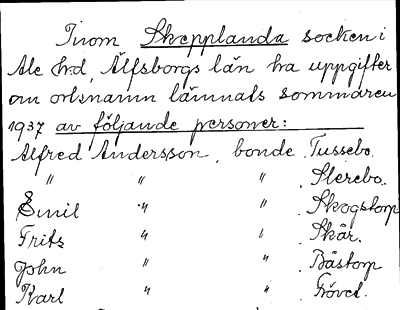 Inom Skepplanda socken i
Ale hrd, Älfsborgs län ha uppgifter
om ortsnamn lämnats sommaren
1937 av följande personer:
Alfred Andersson, bonde, Tussebo.
" " " Slerebo.
Emil " " Skogstorp
Fritz " " Skår.
John " " Båstorp
Karl " "